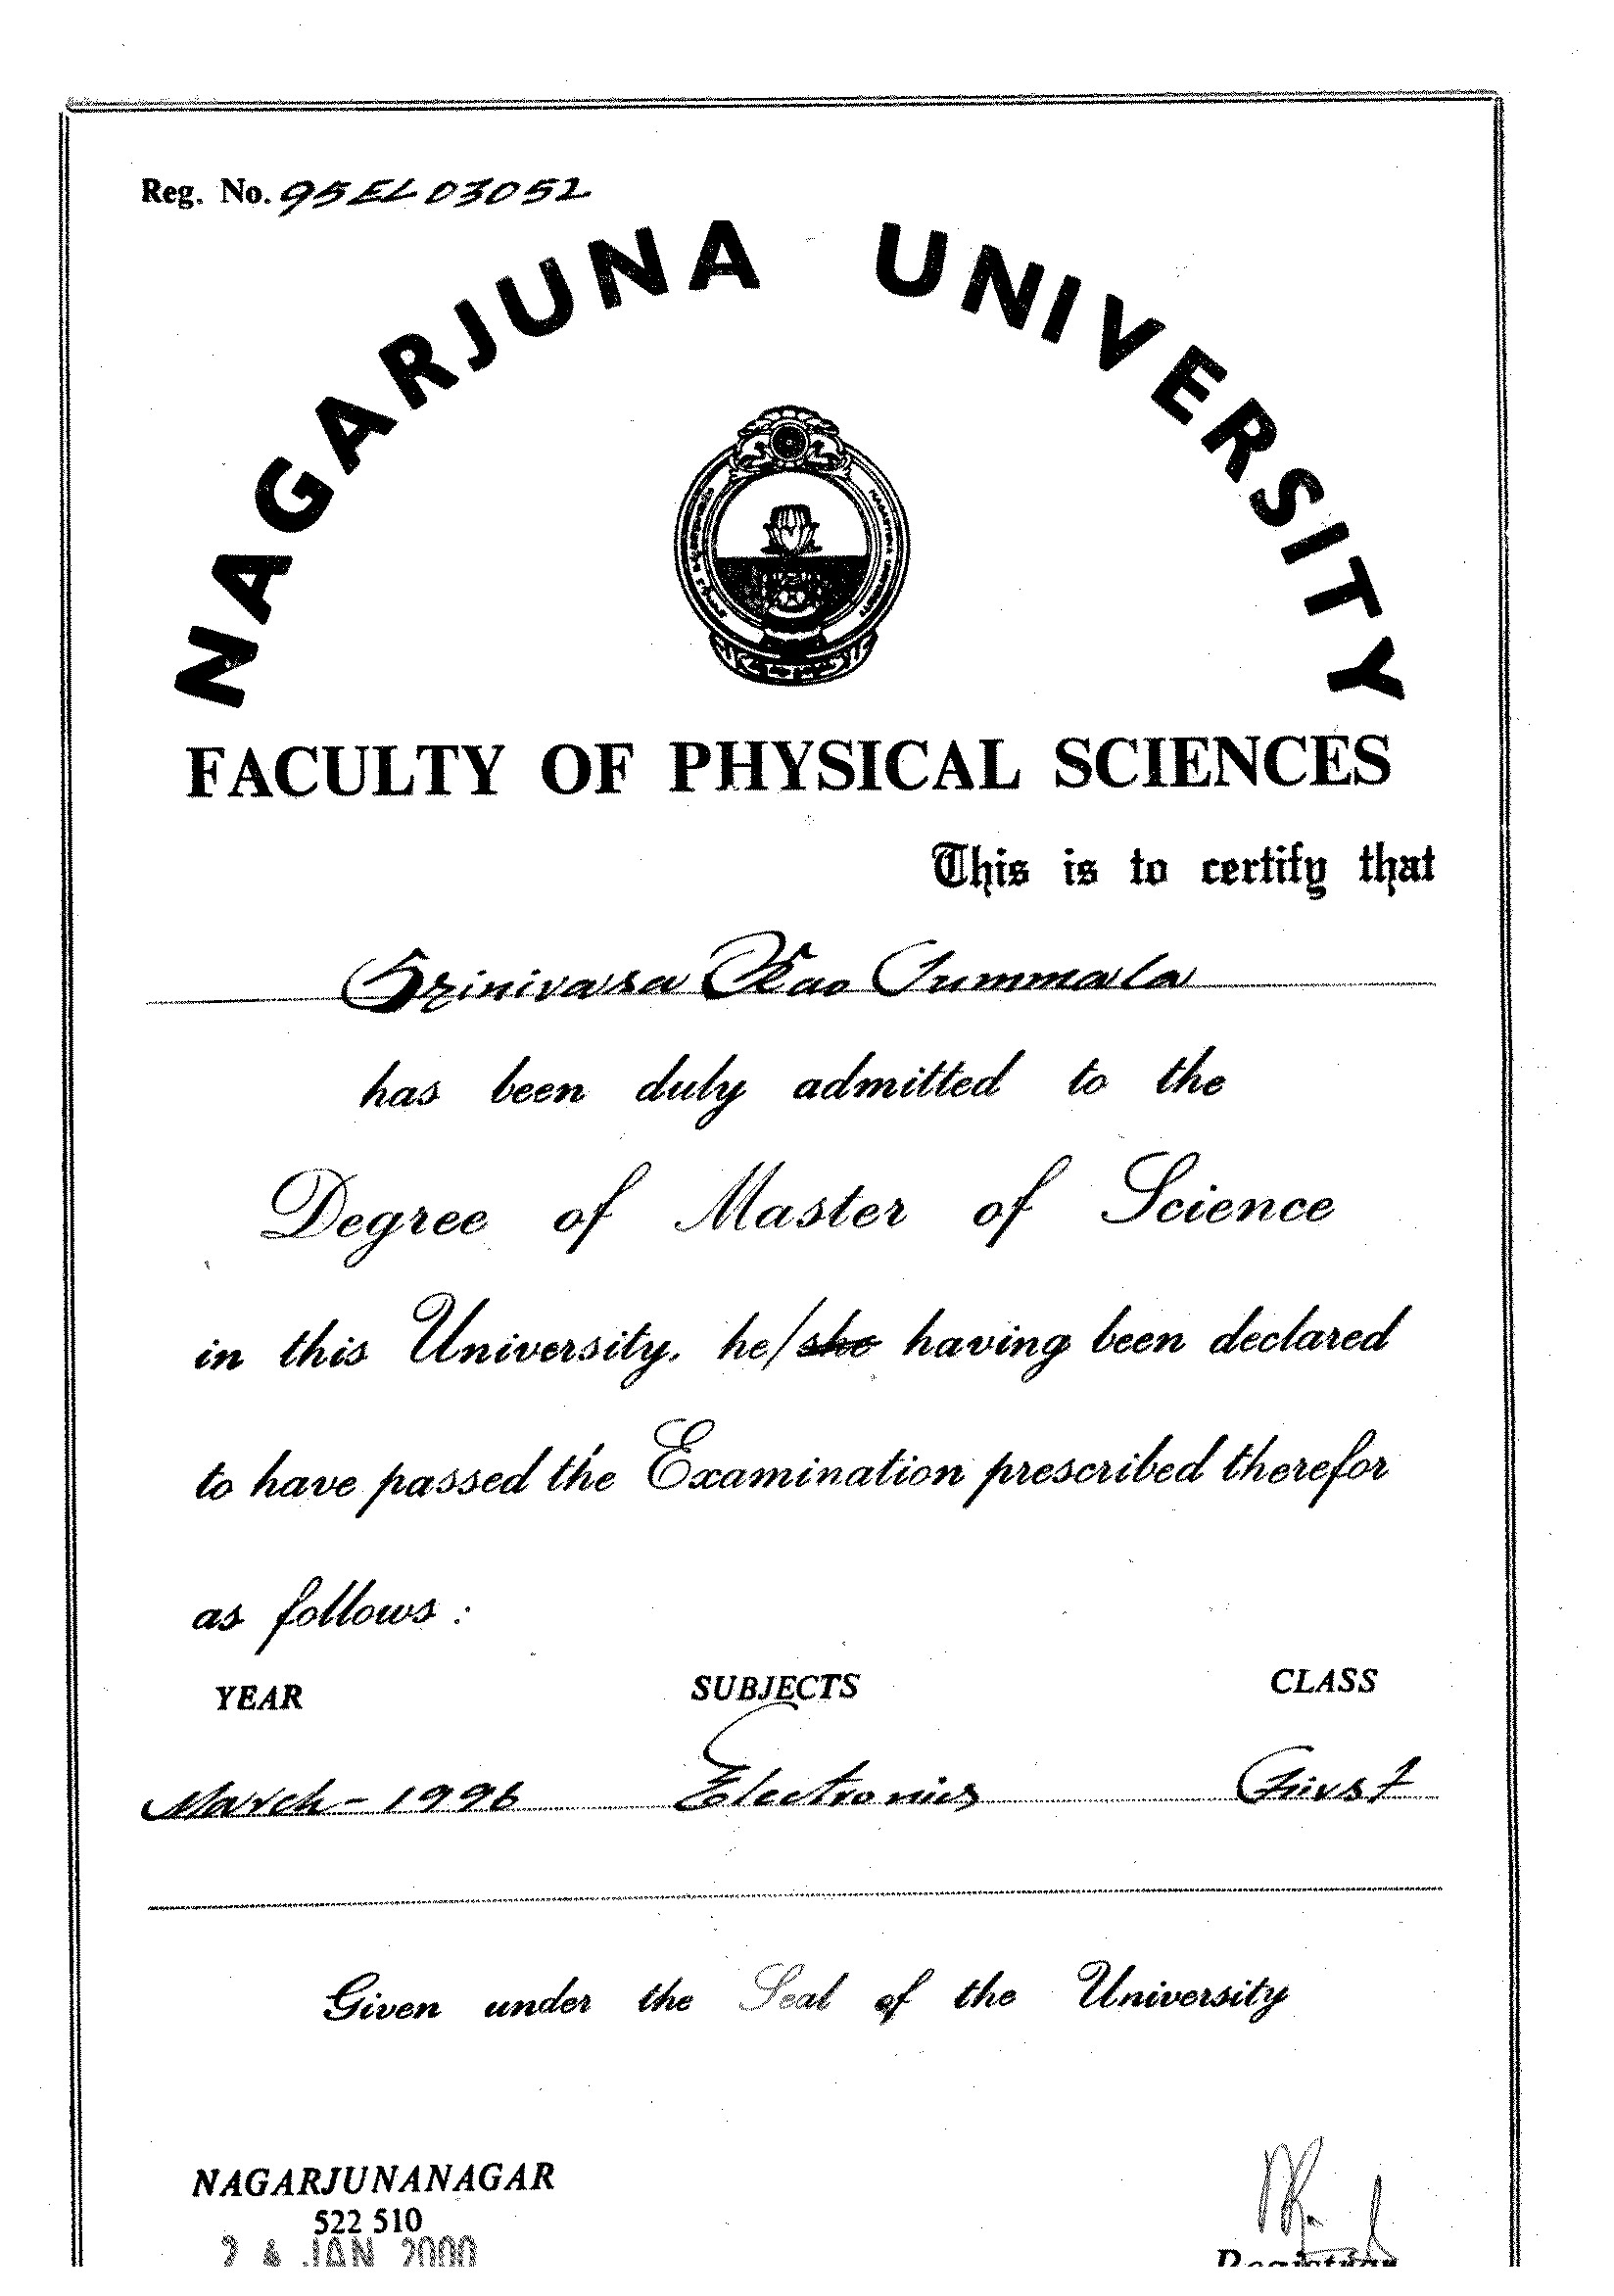 Reg. No. 95EL03052
NAGARJUNA UNIVERSITY
NAGARJUNA UNIVERSITY
FACULTY OF PHYSICAL SCIENCES
This is to certify that
Srinivasa Rao Tummala
has been duly admitted to the
Degree of Master of Science
in this University, he/she having been declared
to have passed the Examination prescribed therefor
as follows :
YEAR SUBJECTS CLASS
March - 1996 Electronics First
Given under the Seal of the University
NAGARJUNANAGAR
522 510
24 JAN 2000
Registrar